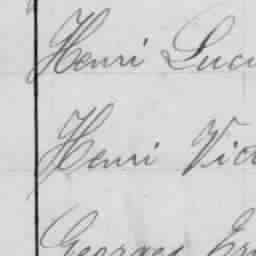 Henri Luci
Henri Vict
Georges Er